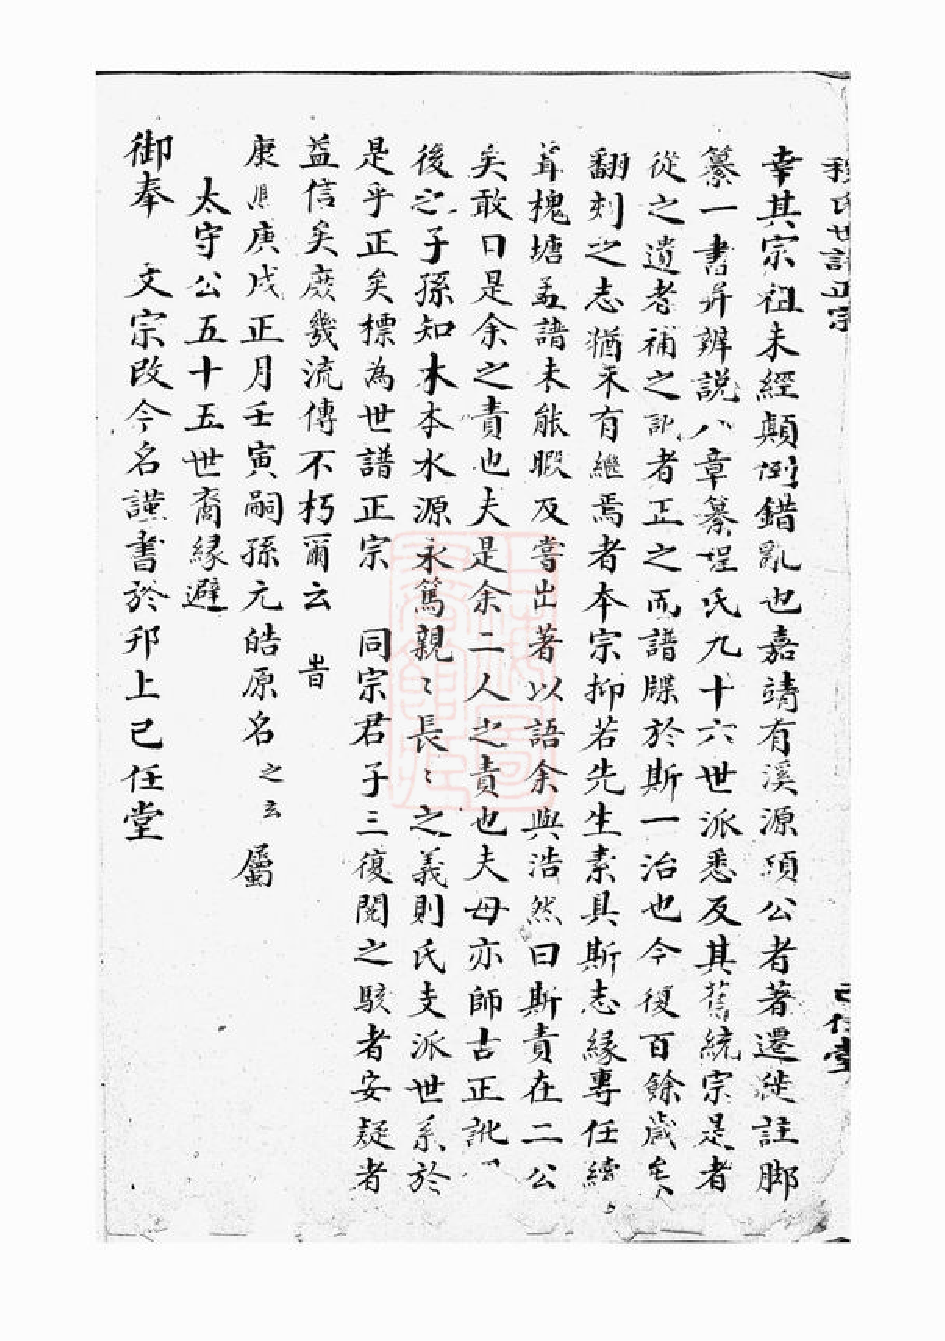 程氏世譜正宗 己任堂
幸其宗祖未經顛倒錯亂也嘉靖有溪源項公者著遷徙註脚
纂一書并辨説八章纂程氏九十六世派悉反其舊統宗是者
從之遺者補之訛者正之而譜牒於斯一治也今復百餘歲矣
翻刻之志猶未有繼焉者本宗抑若先生素具斯志緣專任續
葺槐塘孟譜未能暇及嘗出著以語余與浩然曰斯責在二公
矣敢曰是余之責也夫是余二人之責也夫毋亦師古正訛
後之子孫知木本水源永篤親〻長〻之義則氏支派世系於
是乎正矣標為世譜正宗 同宗君子三復閱之駭者安疑者
益信矣庶幾流傳不朽爾云 旹
康熙庚戌正月壬寅嗣孫元皓原名之玄屬
太守公五十五世裔緣避
御奉 文宗改今名謹書於邗上己任堂